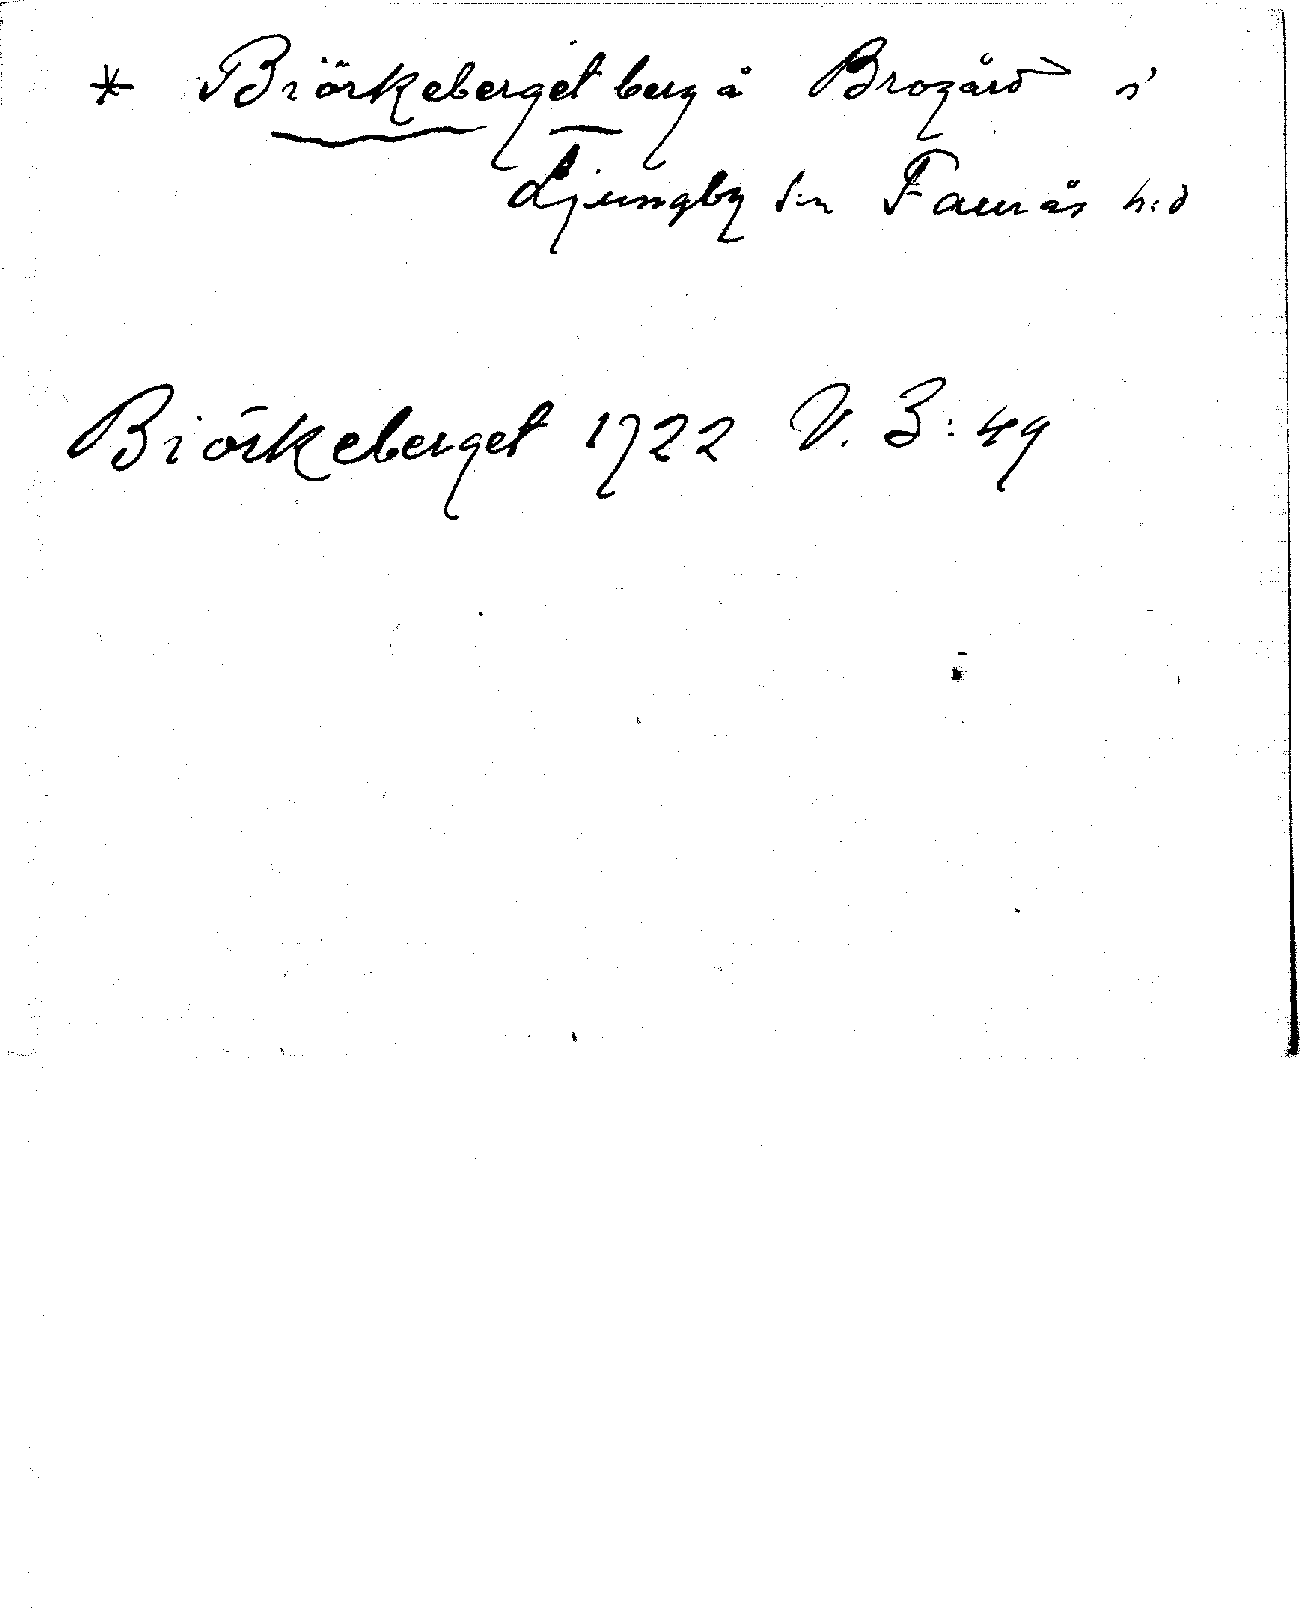 * Biörkeberget berg å Brogård i
Ljungby s:n Faurås h:d
Biörkeberget 1722 V. 3:49